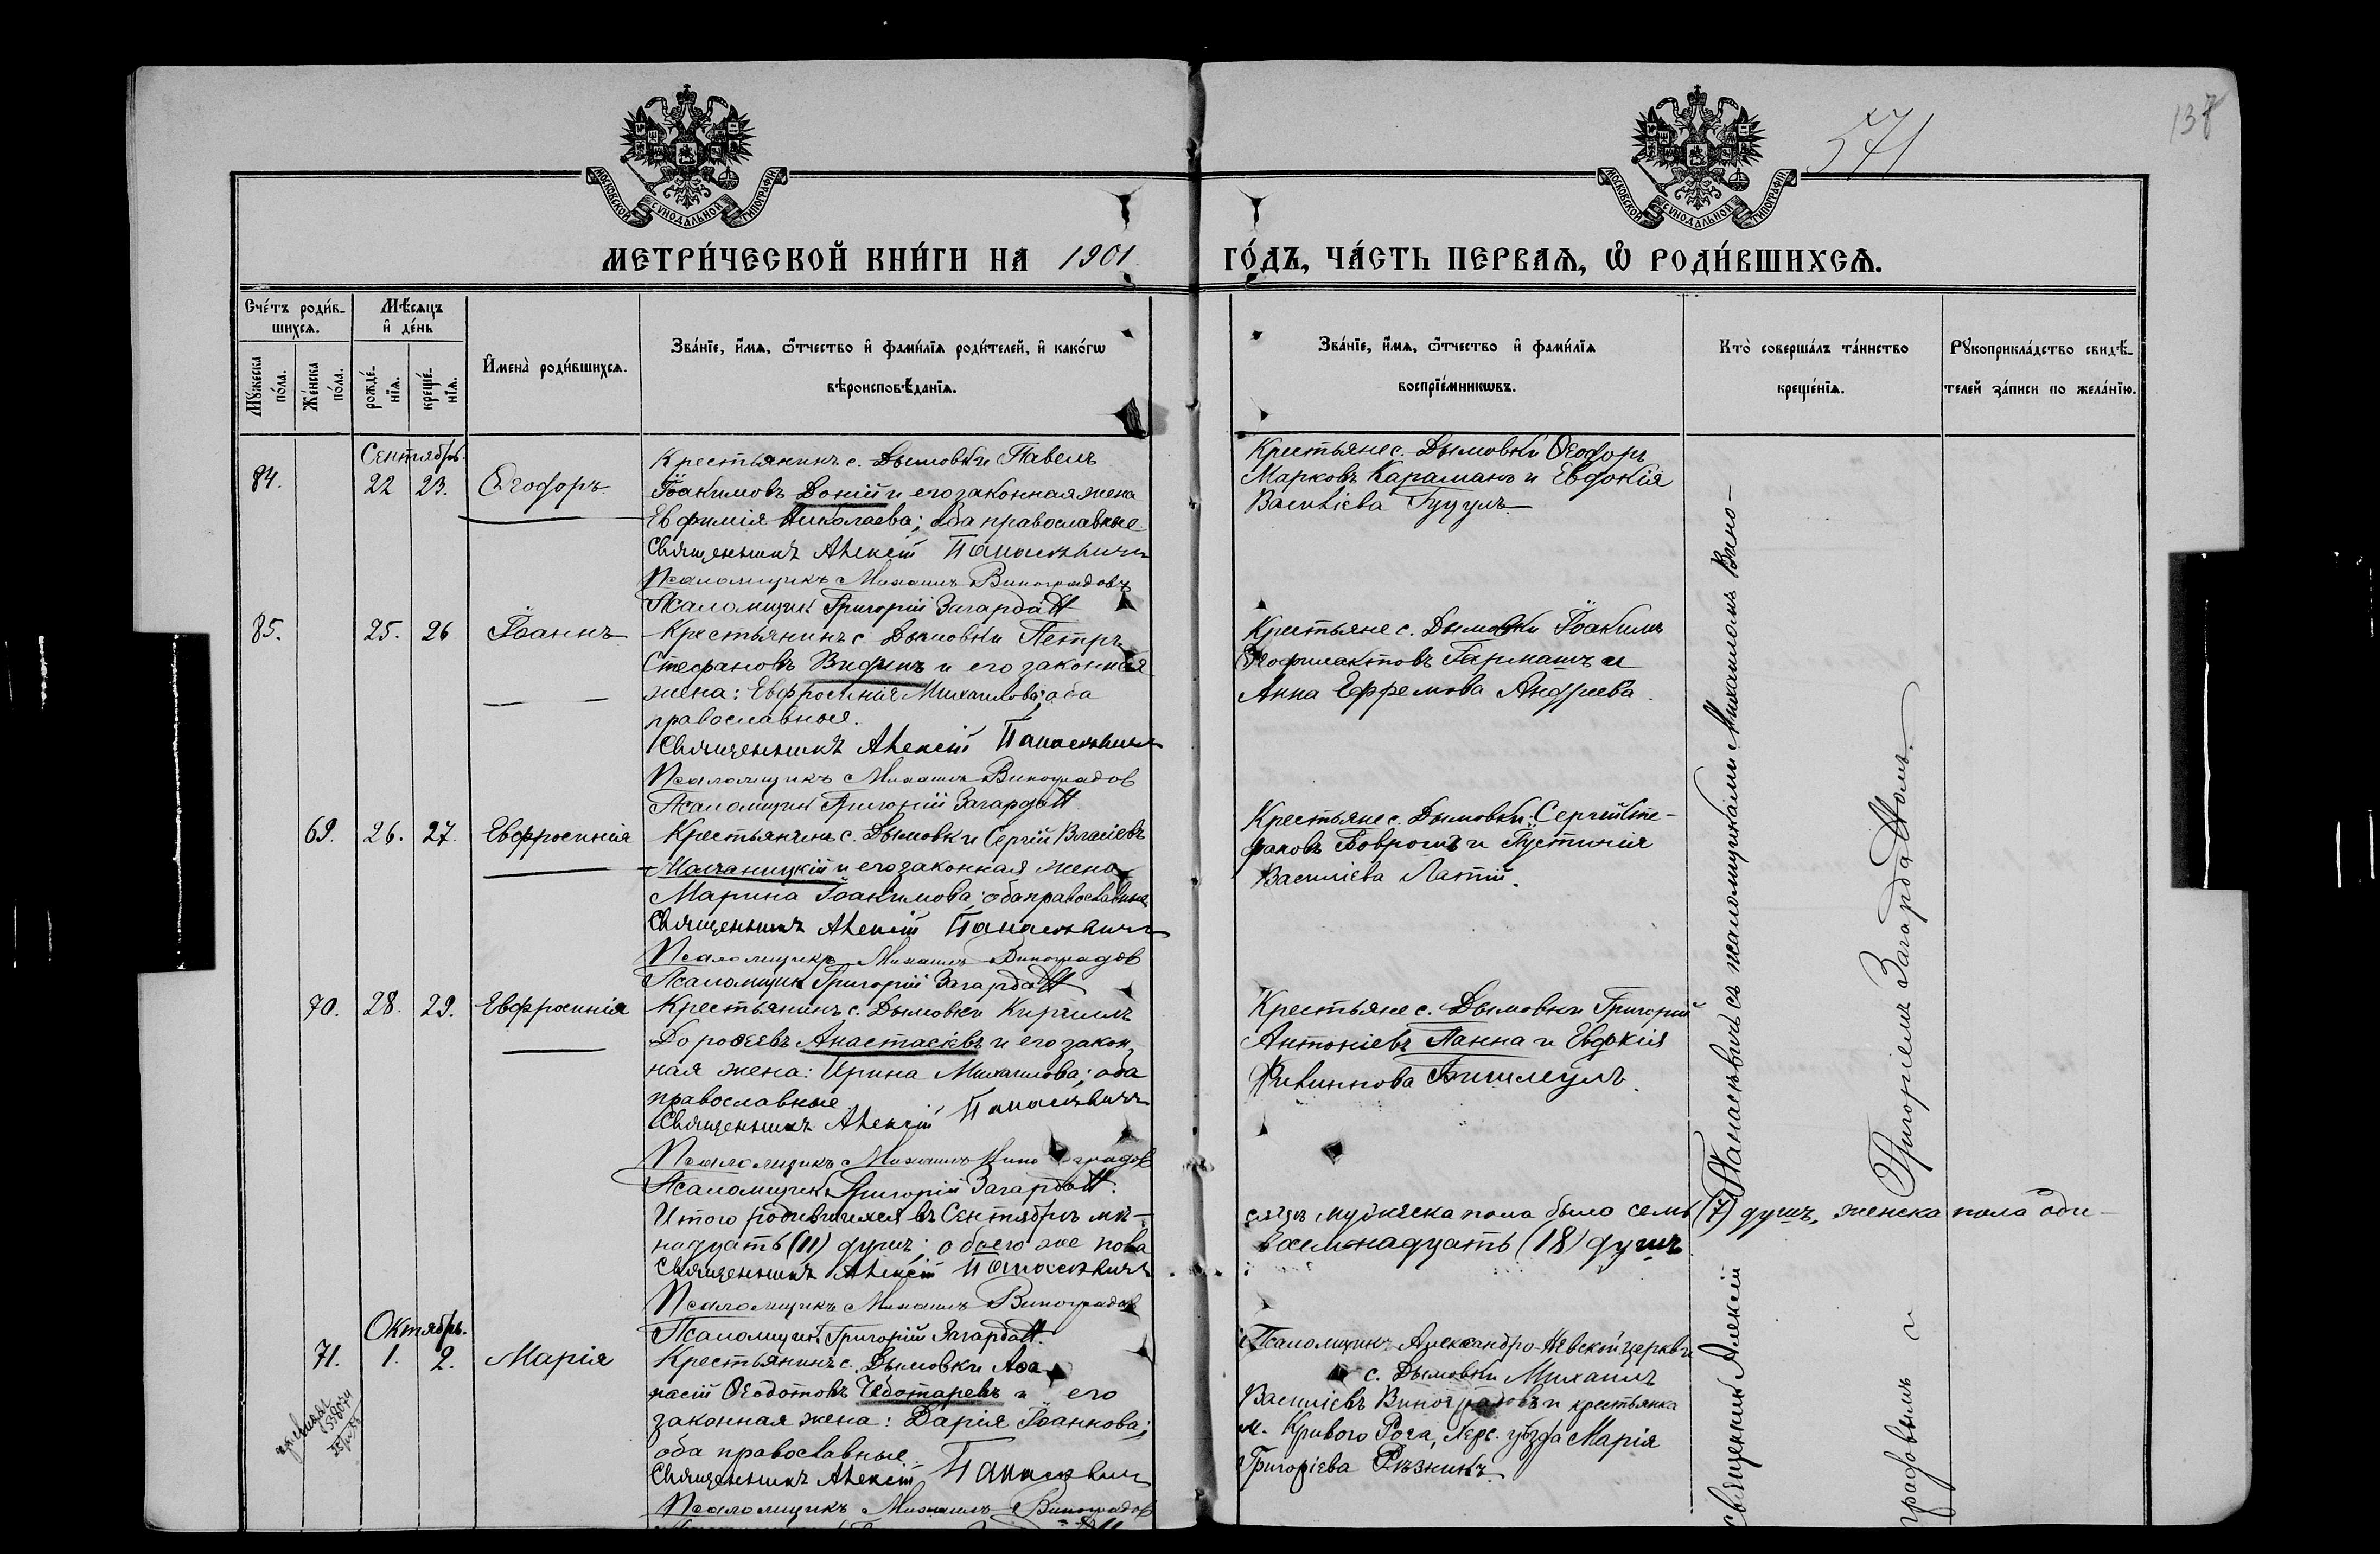 541
138
МОСКОВСКОЙ СѴНОДАЛЬНОЙ ТИПОГРАФІИ
МОСКОВСКОЙ СѴНОДАЛЬНОЙ ТИПОГРАФІИ
МЕТРИ́ЧЕСКОЙ КНИ́ГИ НА 1901 ГО́ДЪ, ЧА́СТЬ ПЕРВАѦ, Ѡ РОДИ́ВШИХСѦ.
Сче́тъ роди́в-
шихсѧ.
Мꙋ́жеска
по́ла.
Же́нска
по́ла.
Мѣ́сѧцъ
и҆ де́нь
рожде́-
нїѧ.
креще́-
нїѧ.
И҆мена̀ роди́вшихсѧ.
Зва́нїе, и҆́мѧ, ѻ҆́тчество и҆ фами́лїѧ роди́телей, и҆ како́гѡ
вѣроисповѣ́данїѧ.
Зва́нїе, и҆́мѧ, ѻ҆́тчество и҆ фами́лїѧ
воспрїе́мникѡвъ.
Кто̀ соверша́лъ та́инство
креще́нїѧ.
Рꙋкоприкла́дство свидѣ́-
телей за́писи по жела́нїю.
Сентябрь.
84. 22 23. Ѳеодоръ
Крестьянинъ с. Дымовки Павелъ
Іоакимовъ Доній и его законная жена
Евфимія Николаева; оба православные
Священникъ Алексій Панасевичъ
Псаломщикъ Михаилъ Виноградовъ
Псаломщикъ Григорій Загарда
Крестьяне с. Дымовки Ѳеодоръ
Марковъ Караманъ и Евдокія
Василіева Гуцулъ
85. 25. 26 Іоаннъ
Крестьянинъ с. Дымовки Петръ
Стефановъ Видинъ и его законная
жена: Евфросинія Михаилова; оба
православные.
Священникъ Алексій Панасевичъ
Псаломщикъ Михаилъ Виноградов
Псаломщикъ Григорій Загарда
Крестьяне с. Дымовки Іоакимъ
Ѳеофилактовъ Гармашъ и
Анна Ефремова Андреева.
69. 26. 27. Евфросинія
Крестьянинъ с. Дымовки Сергій Власіевъ
Молчаницкій и его законная жена
Марина Іоакимова; оба православные
Священникъ Алексій Панасевичъ
Псаломщикъ Михаилъ Виноградов
Псаломщикъ Григорій Загарда
Крестьяне с. Дымовки: Сергій Сте-
фановъ и Іустинія
Василіева Латій.
70. 28. 29. Евфросинія
Крестьянинъ с. Дымовки Кириллъ
Дороѳеевъ Анастасіевъ и его закон-
ная жена: Ирина Михаилова; оба
православные
Священникъ Алексій Панасевичъ
Псаломщикъ Михаилъ Виноградов
Псаломщикъ Григорій Загарда
Крестьяне с. Дымовки Григорій
Антоніевъ Панна и Евдокія
Филиппова
Итого родившихся въ Сентябрѣ мѣ-
сяцѣ мужеска пола было семь (7) душъ, женска пола оди-
надцать (11) душъ; обоего же пола
восемнадцать (18) душъ
Священникъ Алексій Панасевичъ
Псаломщикъ Михаилъ Виноградов
Псаломщикъ Григорій Загарда
Октябрь.
71. 1. 2. Марія
Крестьянинъ с. Дымовки Аѳа-
насій Ѳеодотовъ Чеботаревъ и его
законная жена: Дарія Іоаннова;
оба православные
Священникъ Алексій Панасевичъ
Псаломщикъ Михаилъ Виноградов
Псаломщикъ Александро-Невской церкви
с. Дымовки Михаилъ
Василіевъ Виноградовъ и крестьянка
м. Кривого Рога, Херс. уѣзда Марія
Григоріева Рѣзникъ.
Священникъ Алексій Панасевичъ съ псаломщиками Михаиломъ Вино-
градовымъ и Григоріемъ Загарда